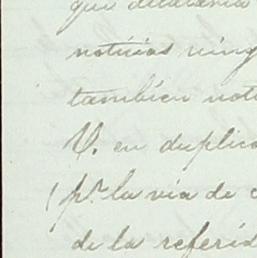 que
noticias ning
tambien not
V. en duplic
(pr. la via de
de la referid